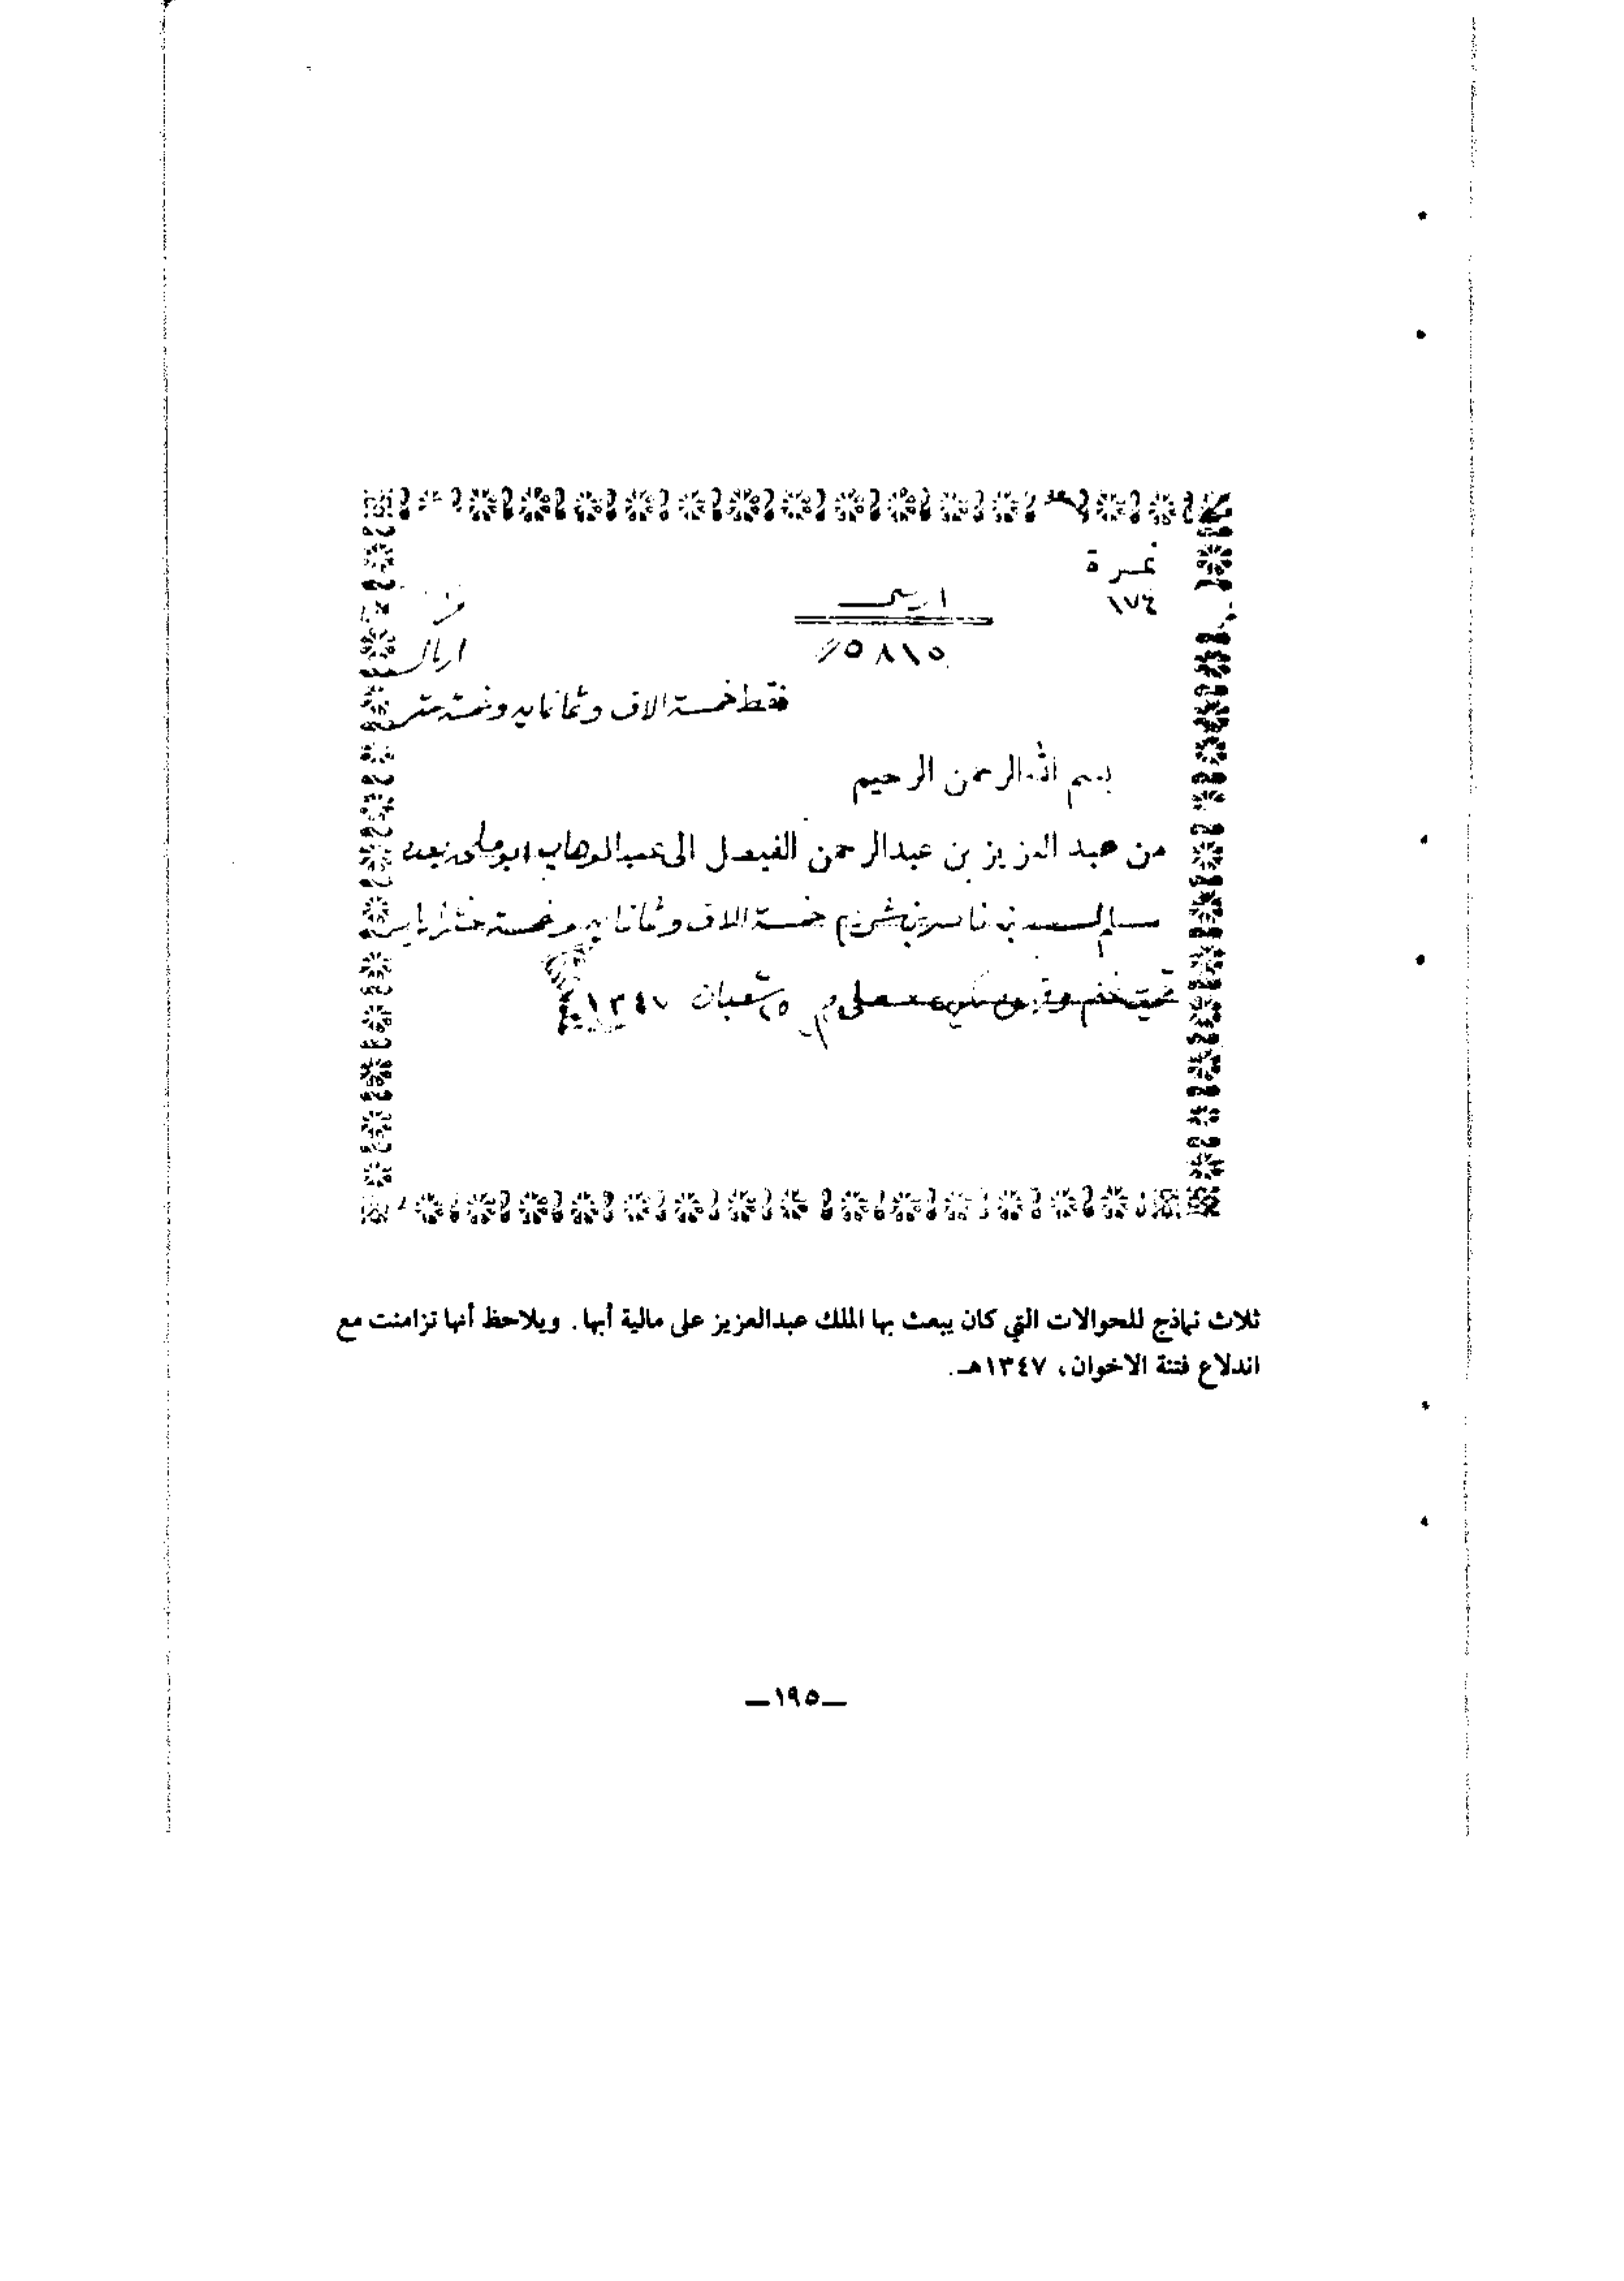 نمرة
١٧٤
٥٨١٥
اريال
فقط خمسة الاف وثمانمايه وخمسة عشر
بسم الله الرحمن الرحيم
من عبد العزيز بن عبدالرحمن الفيصل الى عبدالوهاب ابو ملحه بعده
سلم بن ناصر خمسة الاف وثمانمايه وخمسة عشر اريال
٢٥ شعبان ١٣٤٧
ثلاث نماذج للحوالات التي كان يبعث بها الملك عبدالعزيز على مالية أبها. ويلاحظ أنها تزامنت مع
اندلاع فتنة الاخوان، ١٣٤٧هـ.
—١٩٥—